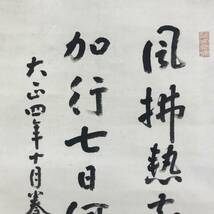 風拂熱
加行七日何
大正四年十月